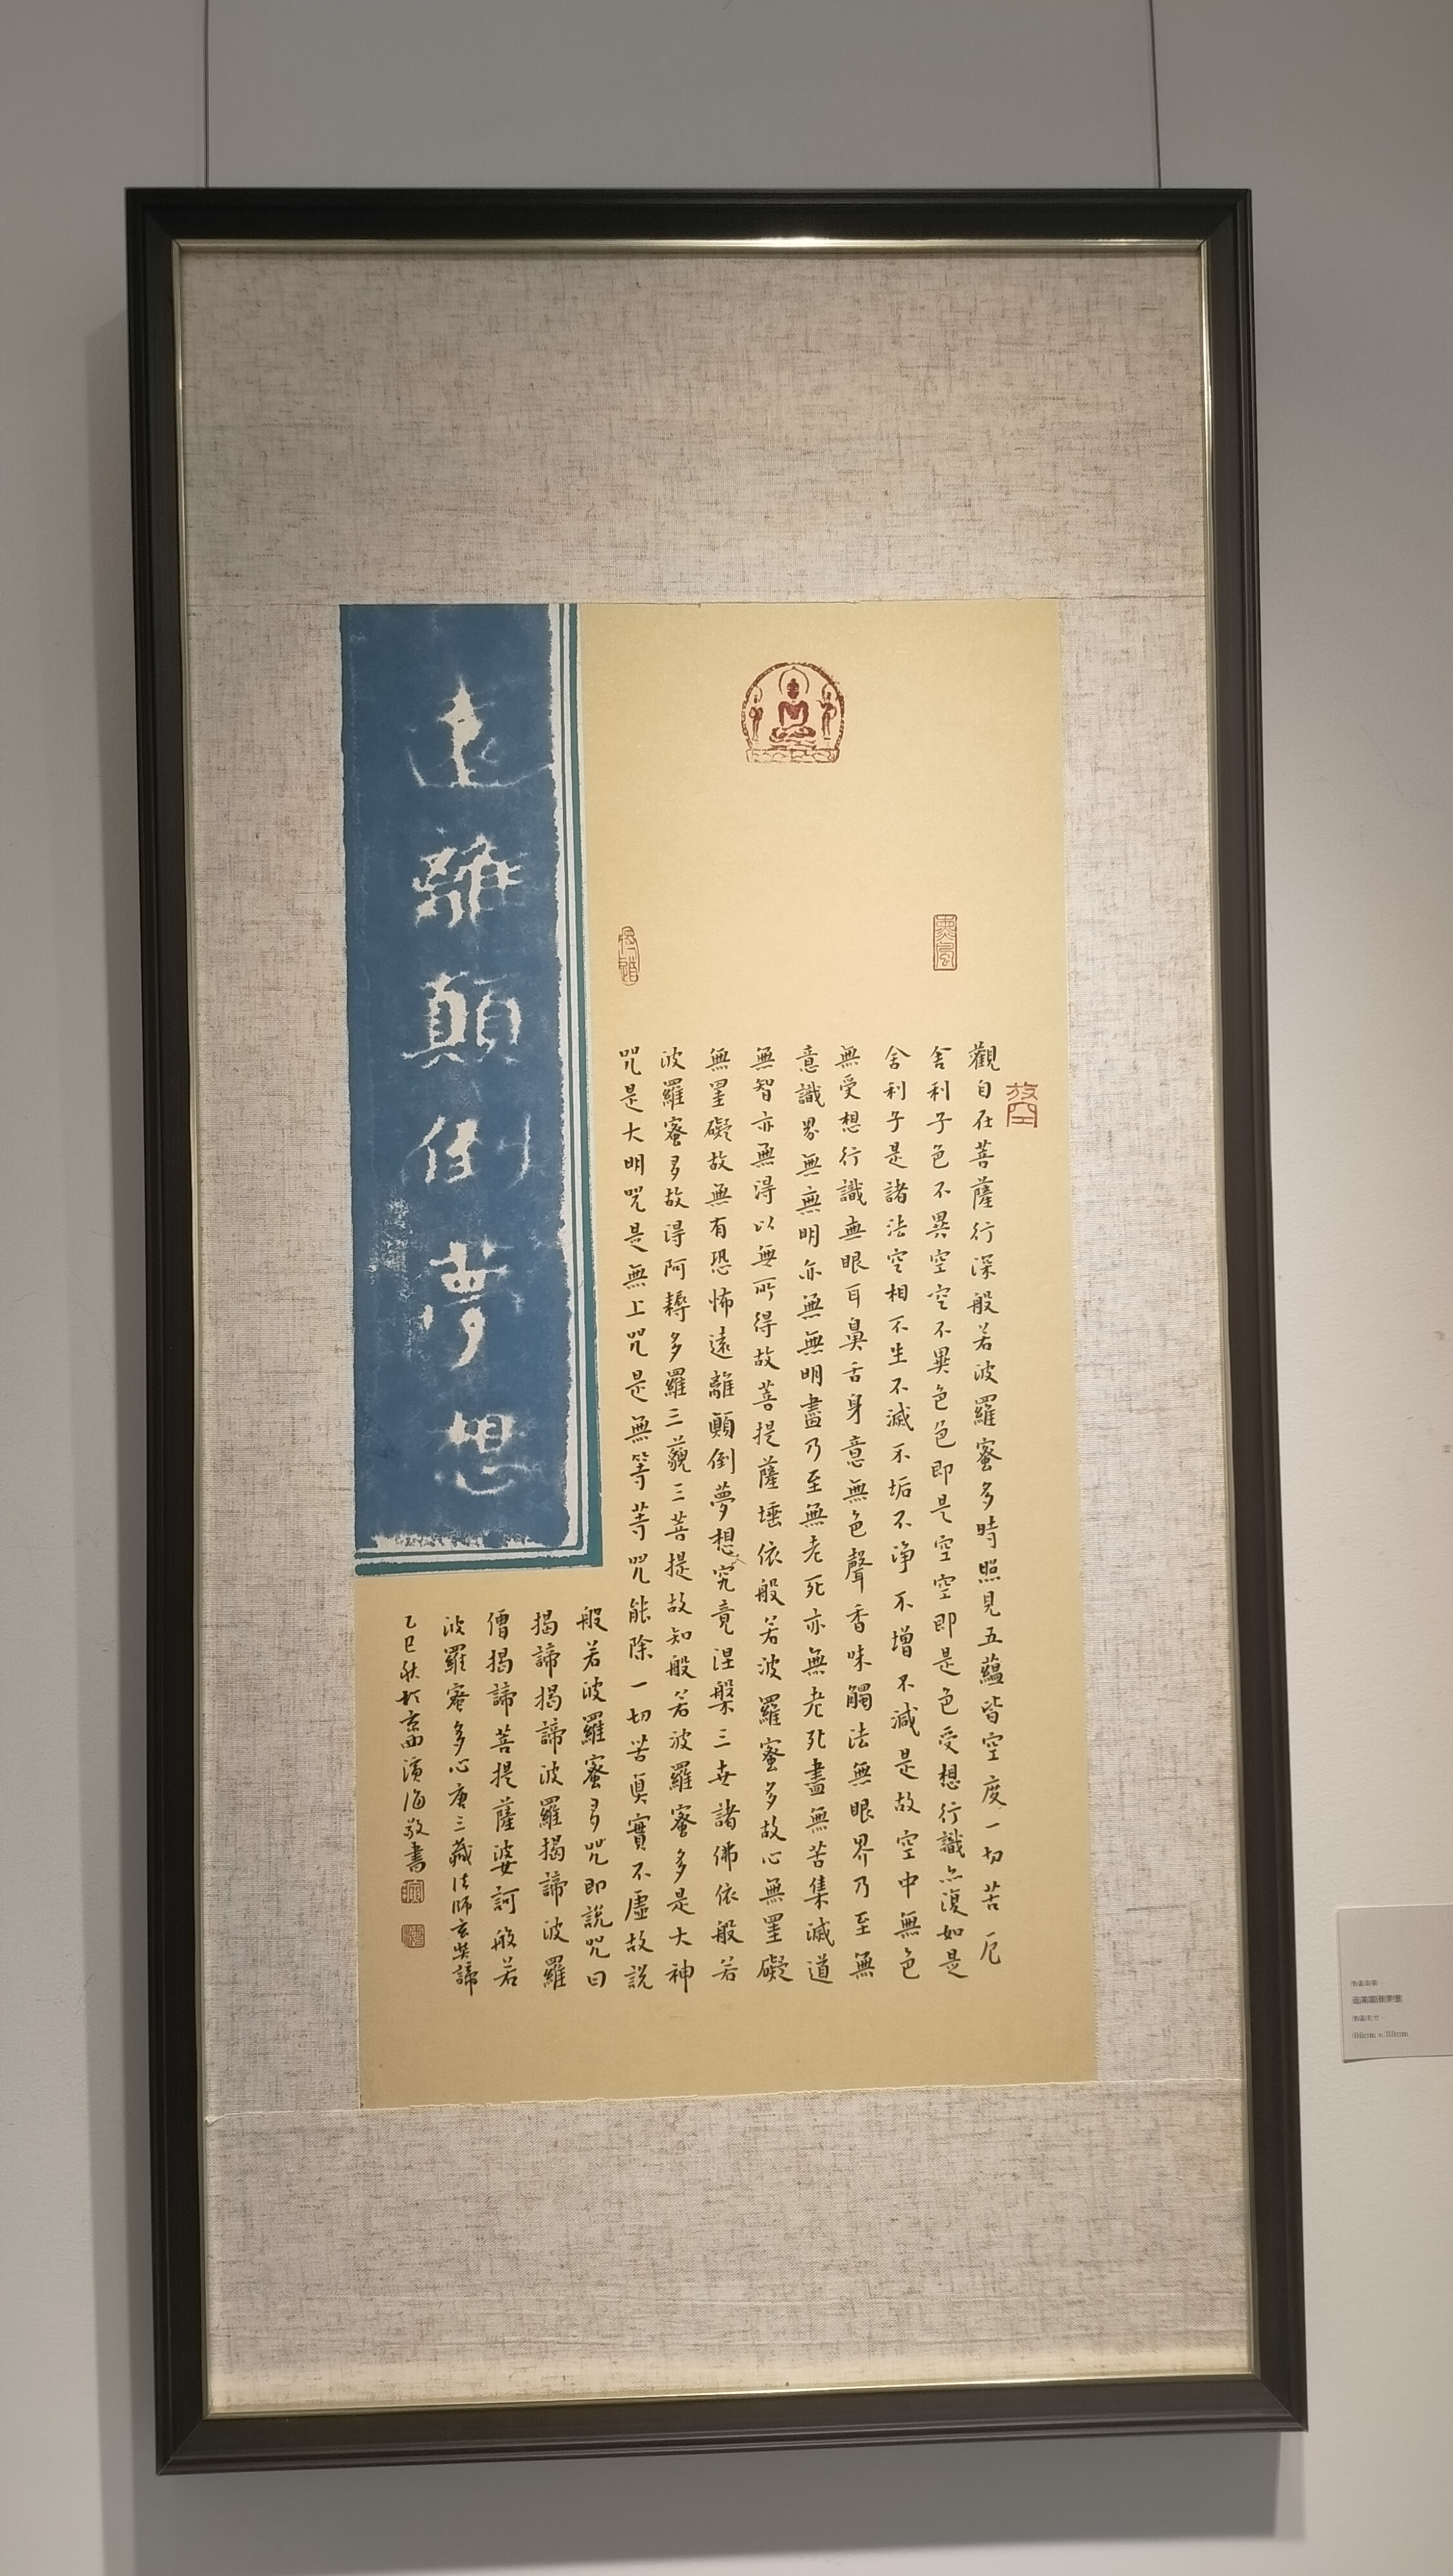 觀自在菩薩行深般若波羅蜜多時照見五蘊皆空度一切苦厄
舍利子色不異空空不異色色即是空空即是色受想行識亦復如是
舍利子是諸法空相不生不滅不垢不淨不增不減是故空中無色
無受想行識無眼耳鼻舌身意無色聲香味觸法無眼界乃至無
意識界無無明亦無無明盡乃至無老死亦無老死盡無苦集滅道
無智亦無得以無所得故菩提薩埵依般若波羅蜜多故心無罣礙
無罣礙故無有恐怖遠離顛倒夢想究竟涅槃三世諸佛依般若
波羅蜜多故得阿耨多羅三藐三菩提故知般若波羅蜜多是大神
咒是大明咒是無上咒是無等等咒能除一切苦真實不虛故說
般若波羅蜜多咒即說咒曰
揭諦揭諦波羅揭諦波羅
僧揭諦菩提薩婆訶般若
波羅蜜多心唐三藏法師玄奘諦
乙巳秋於京西濱海敬書
遠離顛倒夢想
放空